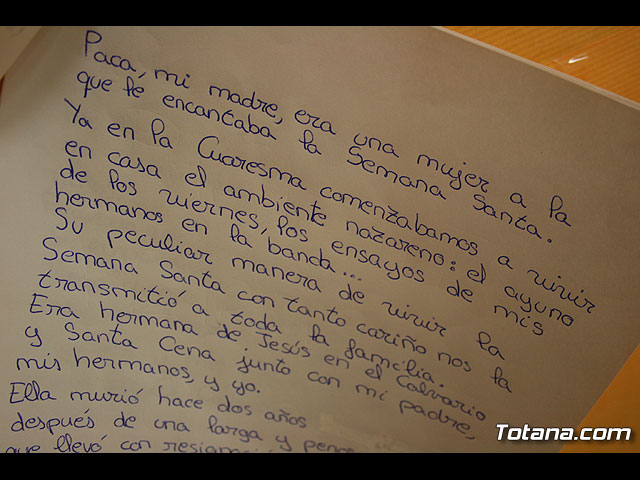 Paca, mi madre, era una mujer a la
que le encantaba la Semana Santa.
Ya en la Cuaresma comenzabamos a vivir
en casa el ambiente nazareno: el ayuno
de los viernes, los ensayos de mis
hermanos en la banda...
Su peculiar manera de vivir la
Semana Santa con tanto cariño nos la
transmitió a toda la familia.
Era hermana de Jesús en el Calvario
y Santa Cena junto con mi padre,
mis hermanos, y yo.
Ella murió hace dos años
después de una larga y
que llevó con
Totana.com
Totana.com